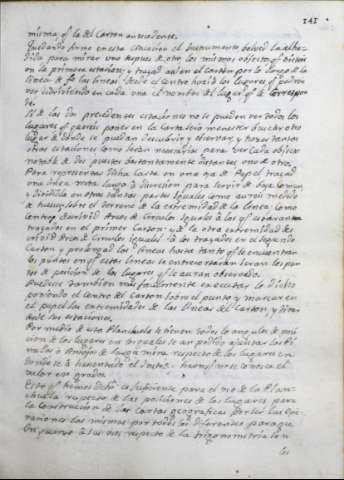 141
misma q.e la del Carton antecedente.
Quedando firme en esta situacion el Instrumento bolved la alhi-
dada para mirar uno despues de otro los mismos objetos q.e visteis
en la primera estacion, y trazad aun en el Carton por lo largo de la
linea de fe las lineas desde el Centro hacia los lugares q.e vieren
ver escriviendo en cada una el nombre del lugar q.e le Correspon-
de.
Si de las dos precedentes estaciones no se pueden ver todos los
lugares q.e quereis poner en la Carta sera menester buscar otro
lugar de donde se puedan descubrir y observar, y hacer tantas
otras estaciones como sean necesarias para ver cada objeto
notable de dos puestos bastantemente distantes uno de otro.
Para representar dicha Carta en una oja de Papel trazad
una linea recta larga à discrecion para servir de basa comun,
y divididla en otras tantas partes iguales como aureis medido
de sobre el terreno de la extremidad de la linea como
Centro describid Arcos de Circulos iguales à los q.e
trazados en el primer Carton, y de la otra extremidad de-
scribid Arcos de Circulos iguales à los trazados en el segundo
Carton y prolongad las lineas hasta tanto q.e se encuentran
los puntos en q.e estas lineas se entrecortaràn seran los pun-
tos de posicion de los lugares q.e se auran observado.
Puedese tambien mas facilmente executar lo dicho
poniendo el centro del Carton sobre el punto y marcar en
el papel las extremidades de las lineas del Carton, y
desde las estaciones.
Por medio de esta Planchuela se tienen todos los angulos de posi-
cion de los lugares en los quales se an podido ajustar las Pi-
nulas ò Anteojo de larga mira respecto de los lugares en
donde se à hecho el puesto. hasta no se conosca el
valor en grados.
Esto q.e hemos dicho es suficiente para el uso de la Plan-
chuela respecto de las posiciones de los lugares para
la Construccion de las Cartas geograficas. Por ser las Ope-
raciones las mismas por todos los diferentes parages
En quanto à sus usos respecto de la trigonometria son
los